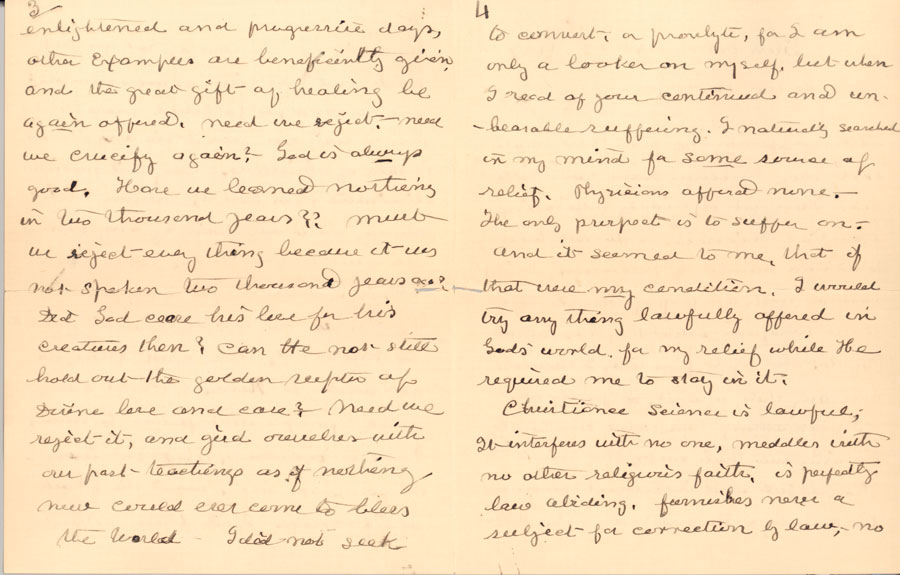 3
enlightened and progressive days,
other Examples are beneficiently given,
and the great gift of healing be
again offered. need we reject. - need
we crucify again? - God is always
good. Have we learned nothing
in two thousand years?? must
we reject every thing because it was
not spoken two thousand years ago?
Did God cease his love for his
creatures then? Can He not still
hold out the golden scepter of
Divine love and care? Need we
reject it, and gird ourselves with
our past teachings as if nothing
new could ever come to bless
the World - I did not seek
4
to convert, or proselyte, for I am
only a looker on myself. but when
I read of your continued and un-
-bearable suffering. I naturally searched
in my mind for some source of
relief. Physicians afford none. -
The only prospect is to suffer on -
and it seemed to me, that if
that were my condition, I would
try any thing lawfully offered in
God's world, for my relief while He
required me to stay in it.
Christianee Science is lawful,
It interferes with no one, meddles with
no other religious faith, is perfectly
law abiding. furnishes never a
subject for correction by law, - no